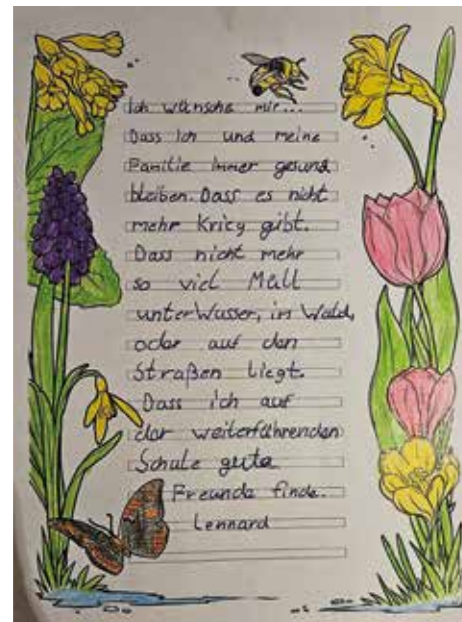 Ich wünsche mir...
Dass ich und meine
Familie immer gesund
bleiben. Dass es nicht
mehr Krieg gibt.
Dass nicht mehr
so viel Müll
unter Wasser, im Wald,
oder auf den
Straßen liegt.
Dass ich auf
der weiterführenden
Schule gute
Freunde finde.
Lennard